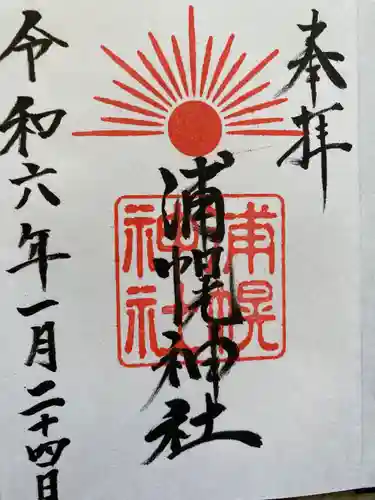 奉拝
浦幌神社
浦幌神社
令和六年一月二十四日